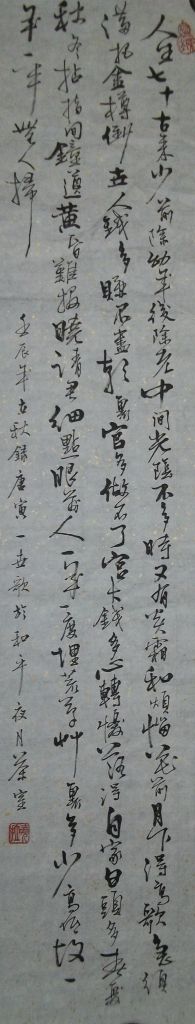 人生七十古來少前除幼年後除老中間光陰不多時又有炎霜和煩惱花前月下得高歌急須
滿把金樽倒世人錢多賺不盡朝裏官多做不了官大錢多心轉憂落得自家白頭早春夏
秋冬拈指間鐘送黃昏雞報曉請君細點眼前人一年一度埋荒草草裏多少高低坟一
年一半無人掃
壬辰年立秋錄唐寅一世歌於和平夜月茶室